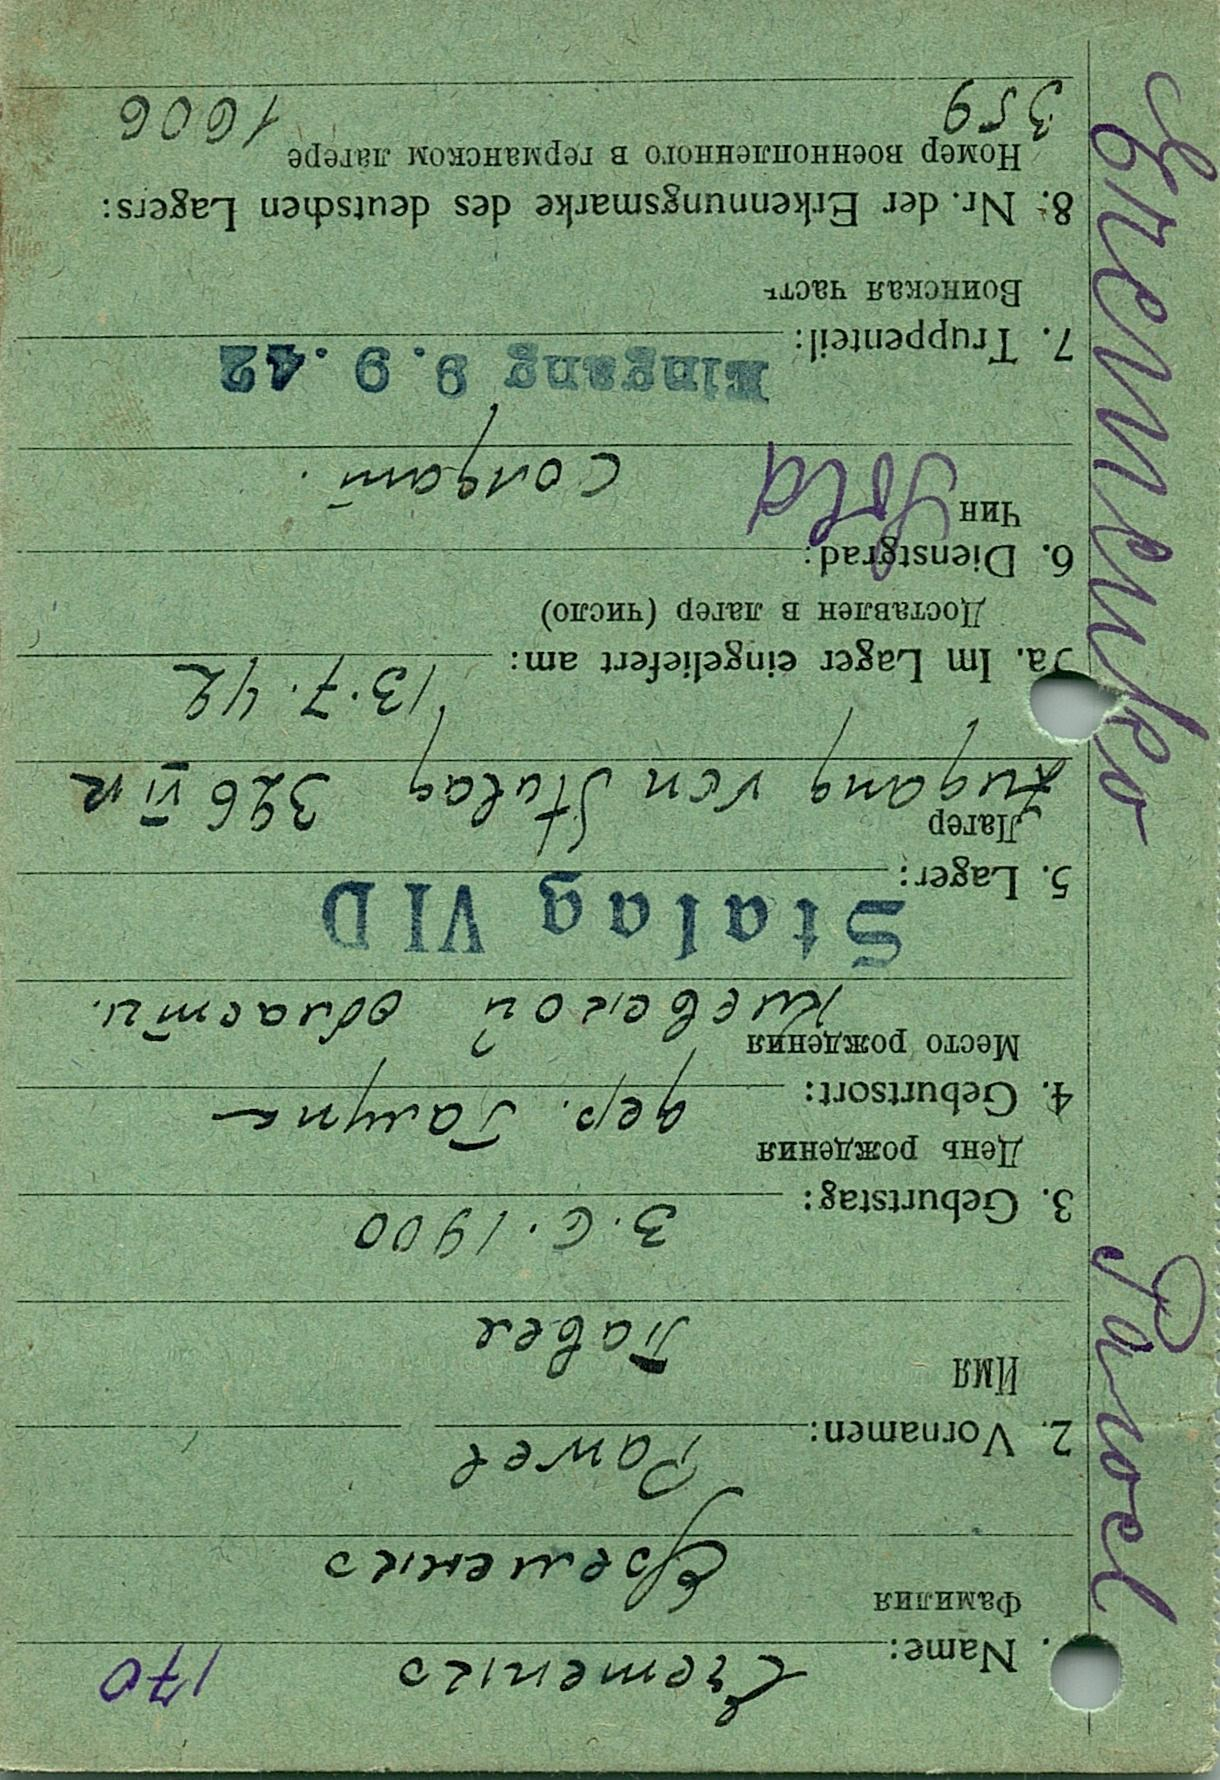 170
1. Name: Eremenko
Фамилия Еременко
2. Vornamen: Pawel
Имя Павел
3. Geburtstag: 3.6.1900
День рождения
4. Geburtsort: дер.
Место рождения Киевской области.
Stalag VI D
5. Lager:
Лагер
Zugang von Stalag 326 VI K
5a. Im Lager eingeliefert am: 13.7.42
Доставлен в лагер (число)
6. Dienstgrad:
Чин Sold солдат.
Eingang 9.9.42
7. Truppenteil:
Воинская часть
8. Nr. der Erkennungsmarke des deutschen Lagers:
Номер военнопленного в германском лагере
359 1606
Eremenko Pawel